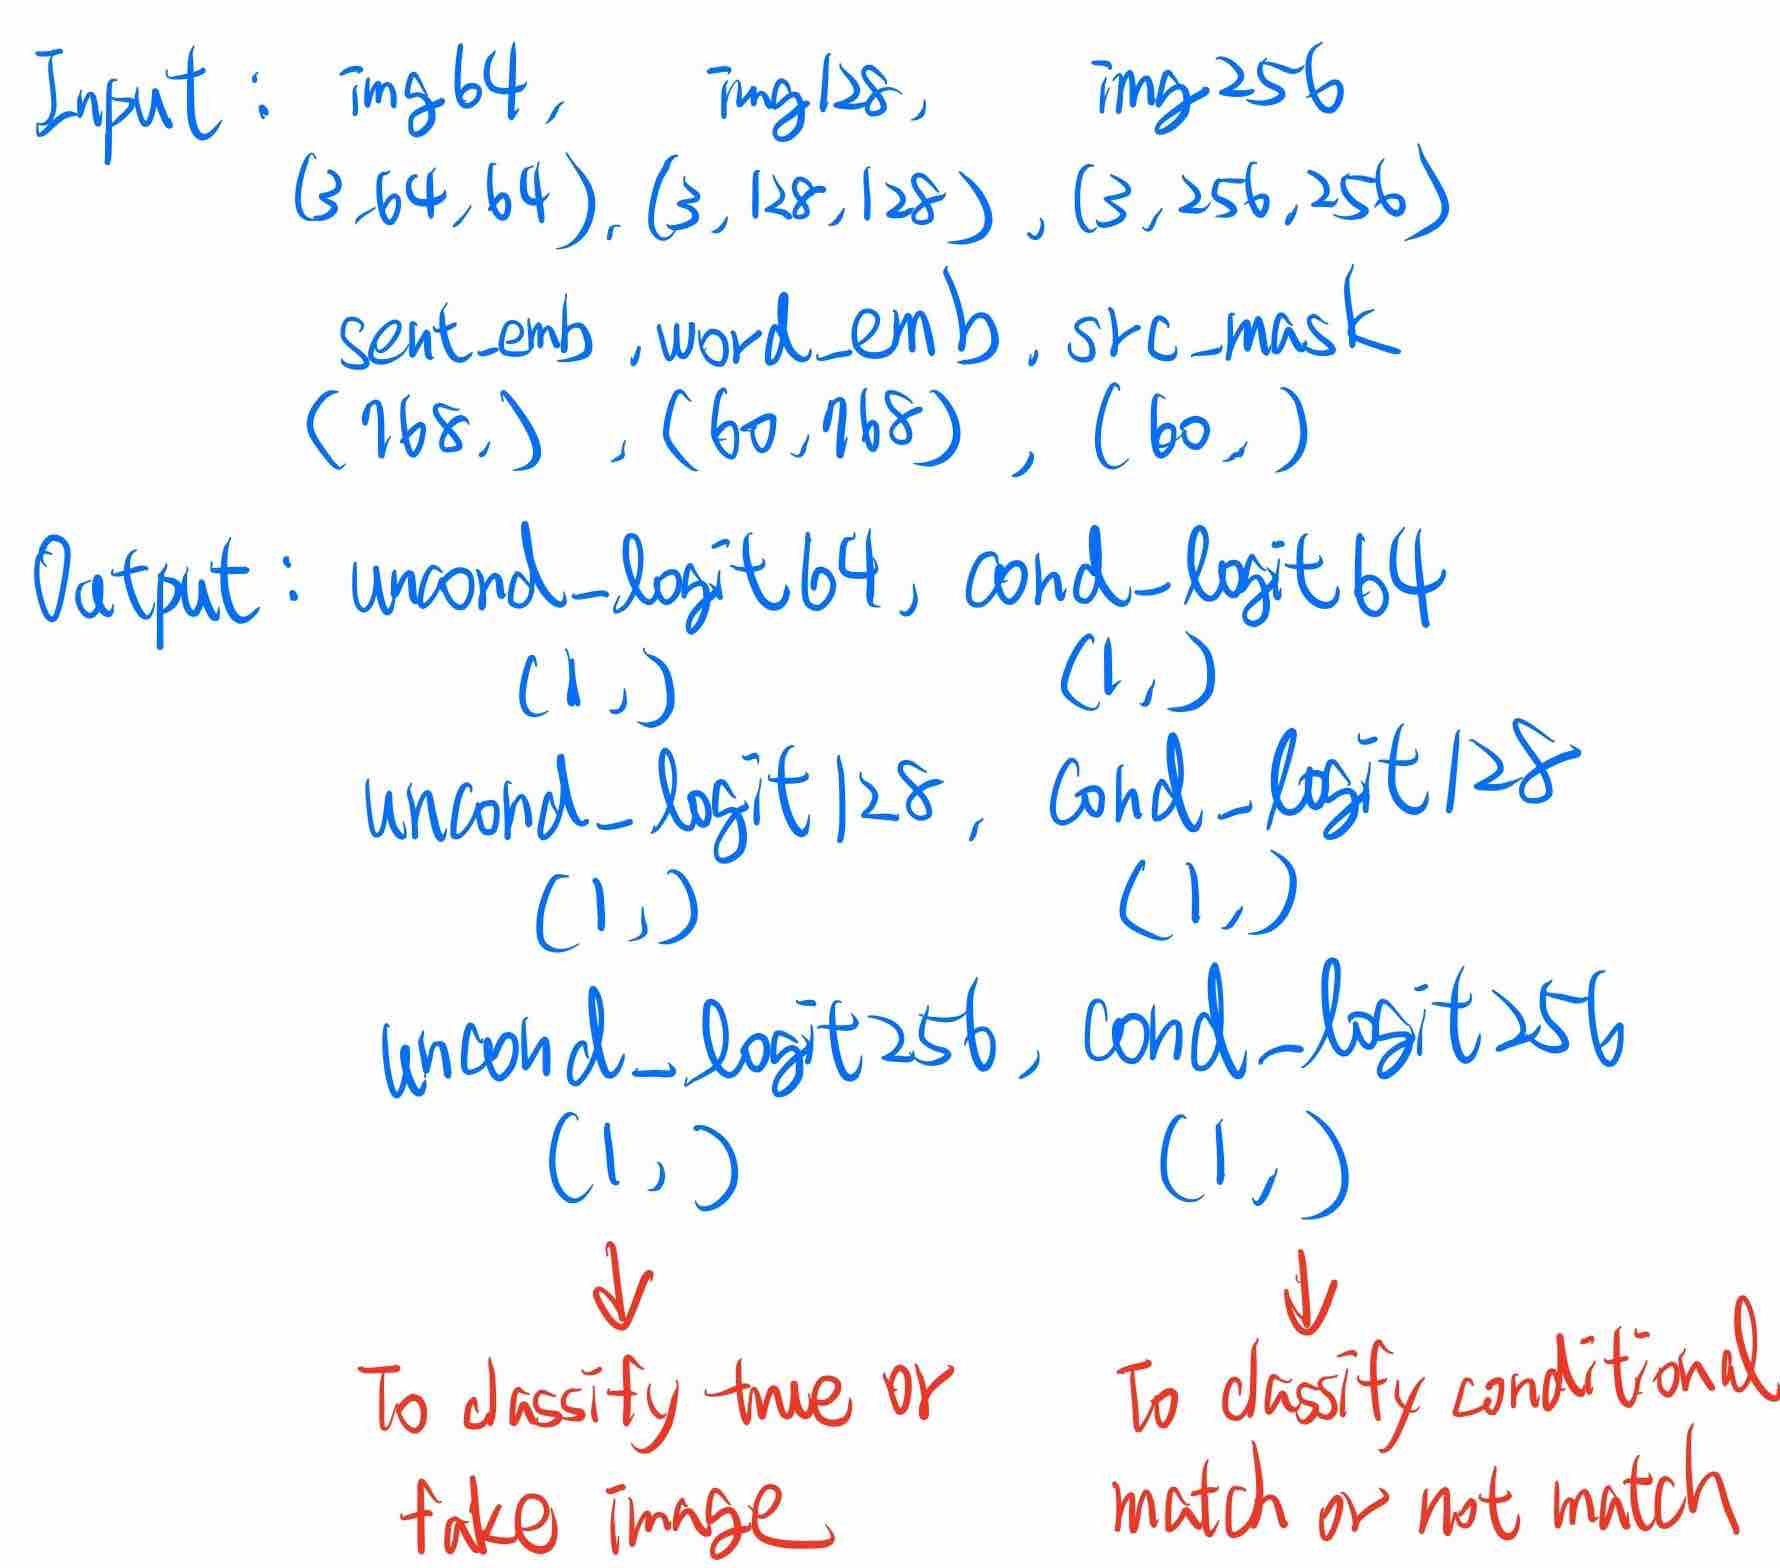 Input: img64, img128, img256
(3,64,64), (3,128,128), (3,256,256)
sent_emb, word_emb, src_mask
(768,), (60,768), (60,)
Output: uncond_logit64, cond_logit64
(1,) (1,)
uncond_logit128, cond_logit128
(1,) (1,)
uncond_logit256, cond_logit256
(1,) (1,)
To classify true or To classify conditional
fake image match or not match